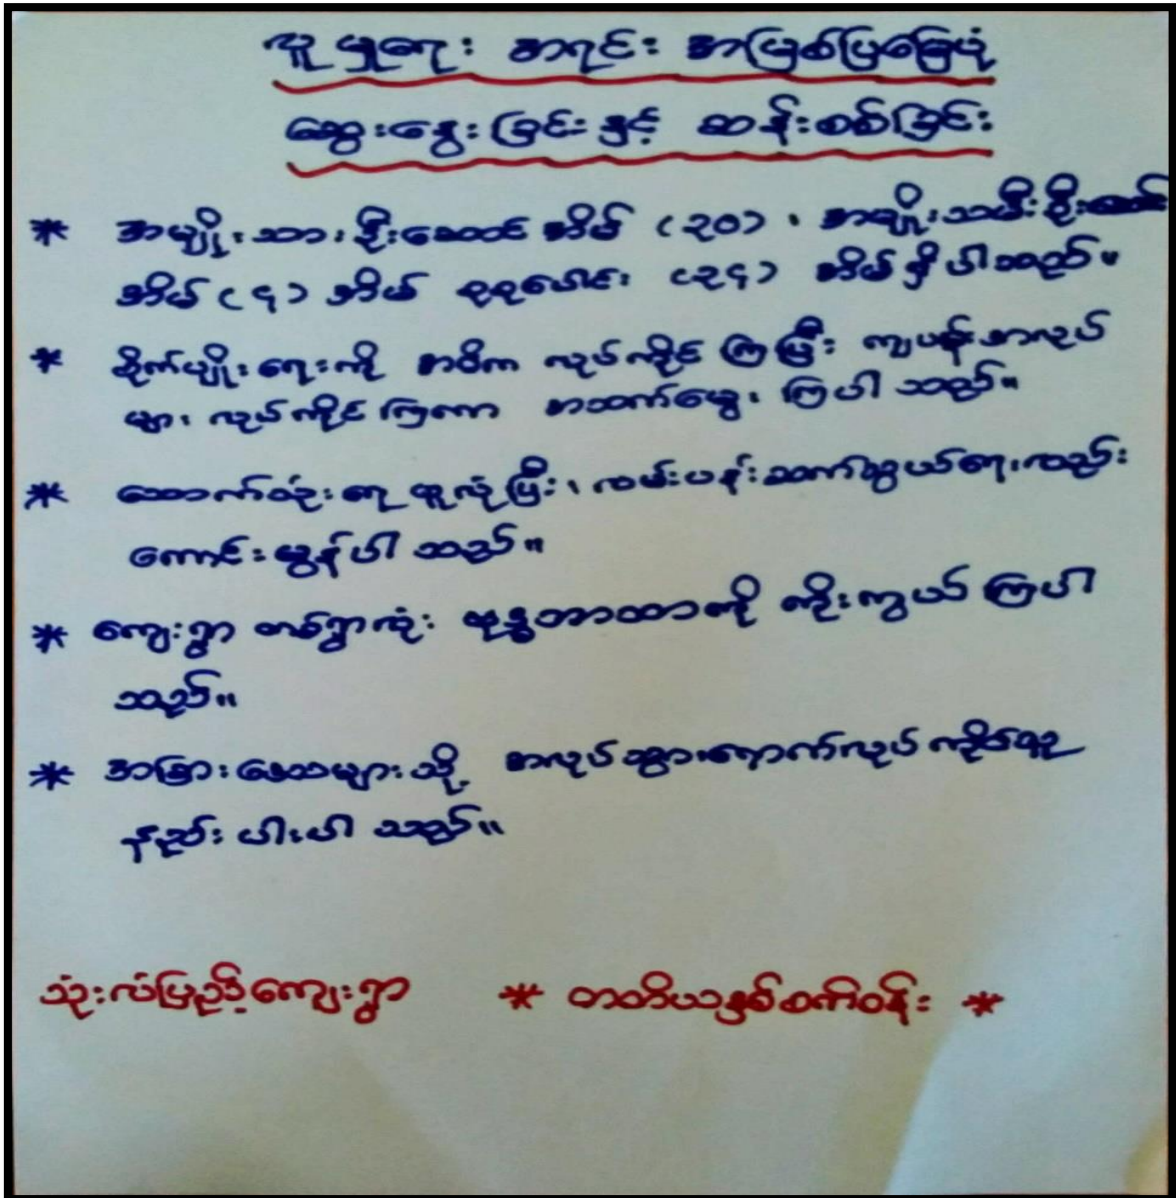 လူမှုရေး အရင်း အမြစ်ပြမြေပုံ
ဆွေးနွေးခြင်းနှင့် ဆန်းစစ်ခြင်း
* အမျိုးသားဦးဆောင်အိမ် (၃၀)၊ အမျိုးသမီးဦးဆောင်
အိမ် (၄) အိမ် စုစုပေါင်း (၃၄) အိမ်ရှိပါသည်။
* စိုက်ပျိုးရေးကို အဓိက လုပ်ကိုင်ကြပြီး ကျပန်းအလုပ်
များ လုပ်ကိုင်ကြကာ အသက်မွေးကြပါသည်။
* သောက်သုံးရေ ထူလုံပြီး၊ လမ်းပန်းဆက်သွယ်ရေးလည်း
ကောင်းမွန်ပါသည်။
* ကျေးရွာ တစ်ရွာလုံး ဗုဒ္ဓဘာသာကို ကိုးကွယ်ကြပါ
သည်။
* အခြားဒေသများသို့ အလုပ်သွားရောက်လုပ်ကိုင်သူ
နည်းပါးပါသည်။
သုံးလံပြည့်ကျေးရွာ * တတိယနှစ်စက်ဝန်း *